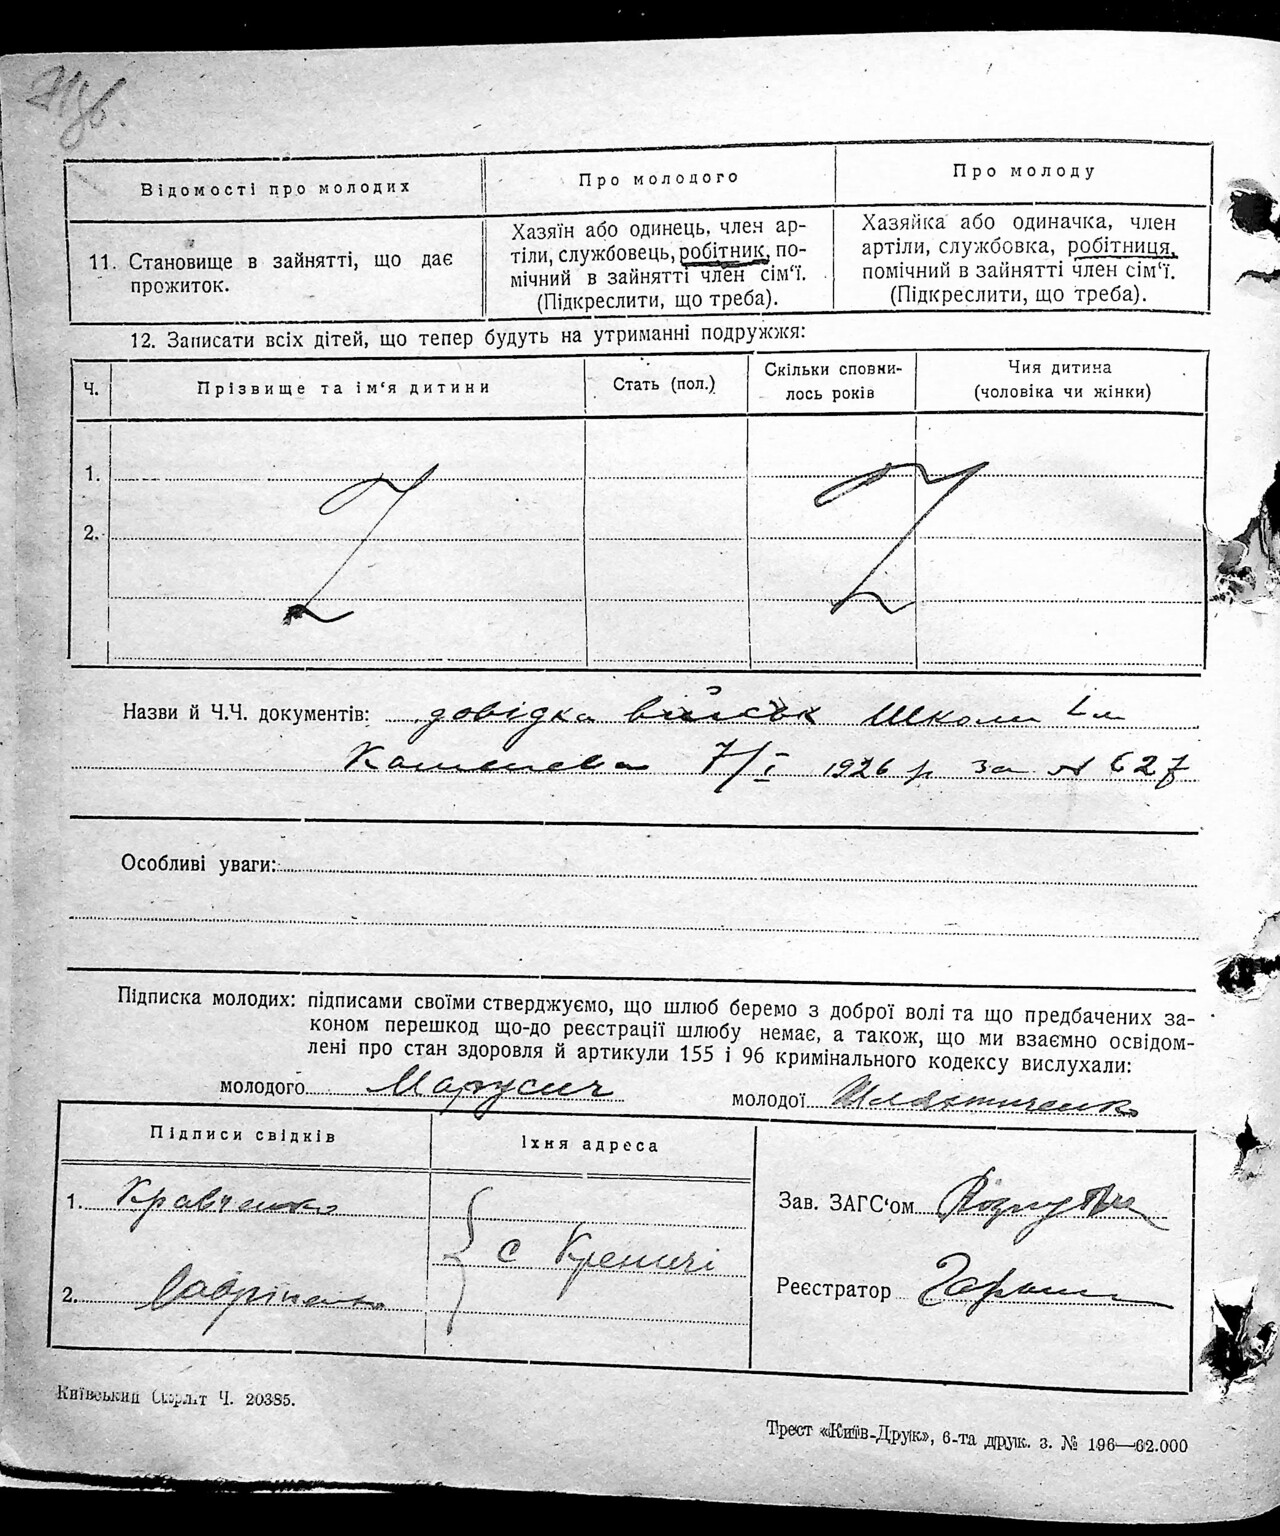 Відомості про молодих
Про молодого
Про молоду
11. Становище в зайнятті, що дає
прожиток.
Хазяїн або одинець, член ар-
тіли, службовець, робітник, по-
мічний в зайнятті член сім'ї.
(Підкреслити, що треба).
Хазяйка або одиначка, член
артіли, службовка, робітниця,
помічний в зайнятті член сім'ї.
(Підкреслити, що треба).
12. Записати всіх дітей, що тепер будуть на утриманні подружжя:
Ч.
Прізвище та ім'я дитини
Стать (пол.)
Скільки сповни-
лось років
Чия дитина
(чоловіка чи жінки)
1.
2.
Назви й Ч.Ч. документів: довідка військ Школи
7/I 1926 р за № 627
Особливі уваги:
Підписка молодих: підписами своїми стверджуємо, що шлюб беремо з доброї волі та що предбачених за-
коном перешкод що-до реєстрації шлюбу немає, а також, що ми взаємно освідом-
лені про стан здоровля й артикули 155 і 96 кримінального кодексу вислухали:
молодого Марусич
молодої
Підписи свідків
Їхня адреса
1. Кравченко
2.
с Креничі
Зав. ЗАГС'ом
Реєстратор
Київський Окрліт Ч. 20385.
Трест «Київ-Друк», 6-та друк. з. № 196—62.000